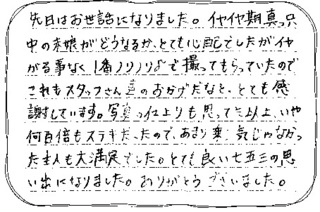 先日はお世話になりました。イヤイヤ期真っ只
中の末娘がどうなるか、とても心配でしたがイヤ
がる事なく1番ノリノリで撮ってもらっていたので
これもスタッフさん達のおかげだなと、とても感
謝しています。写真の仕上りも思ってた以上、いや
何百倍もステキだったので、あまり乗り気じゃなかっ
た主人も大満足でした。とても良い七五三の思
い出になりました。ありがとうございました。